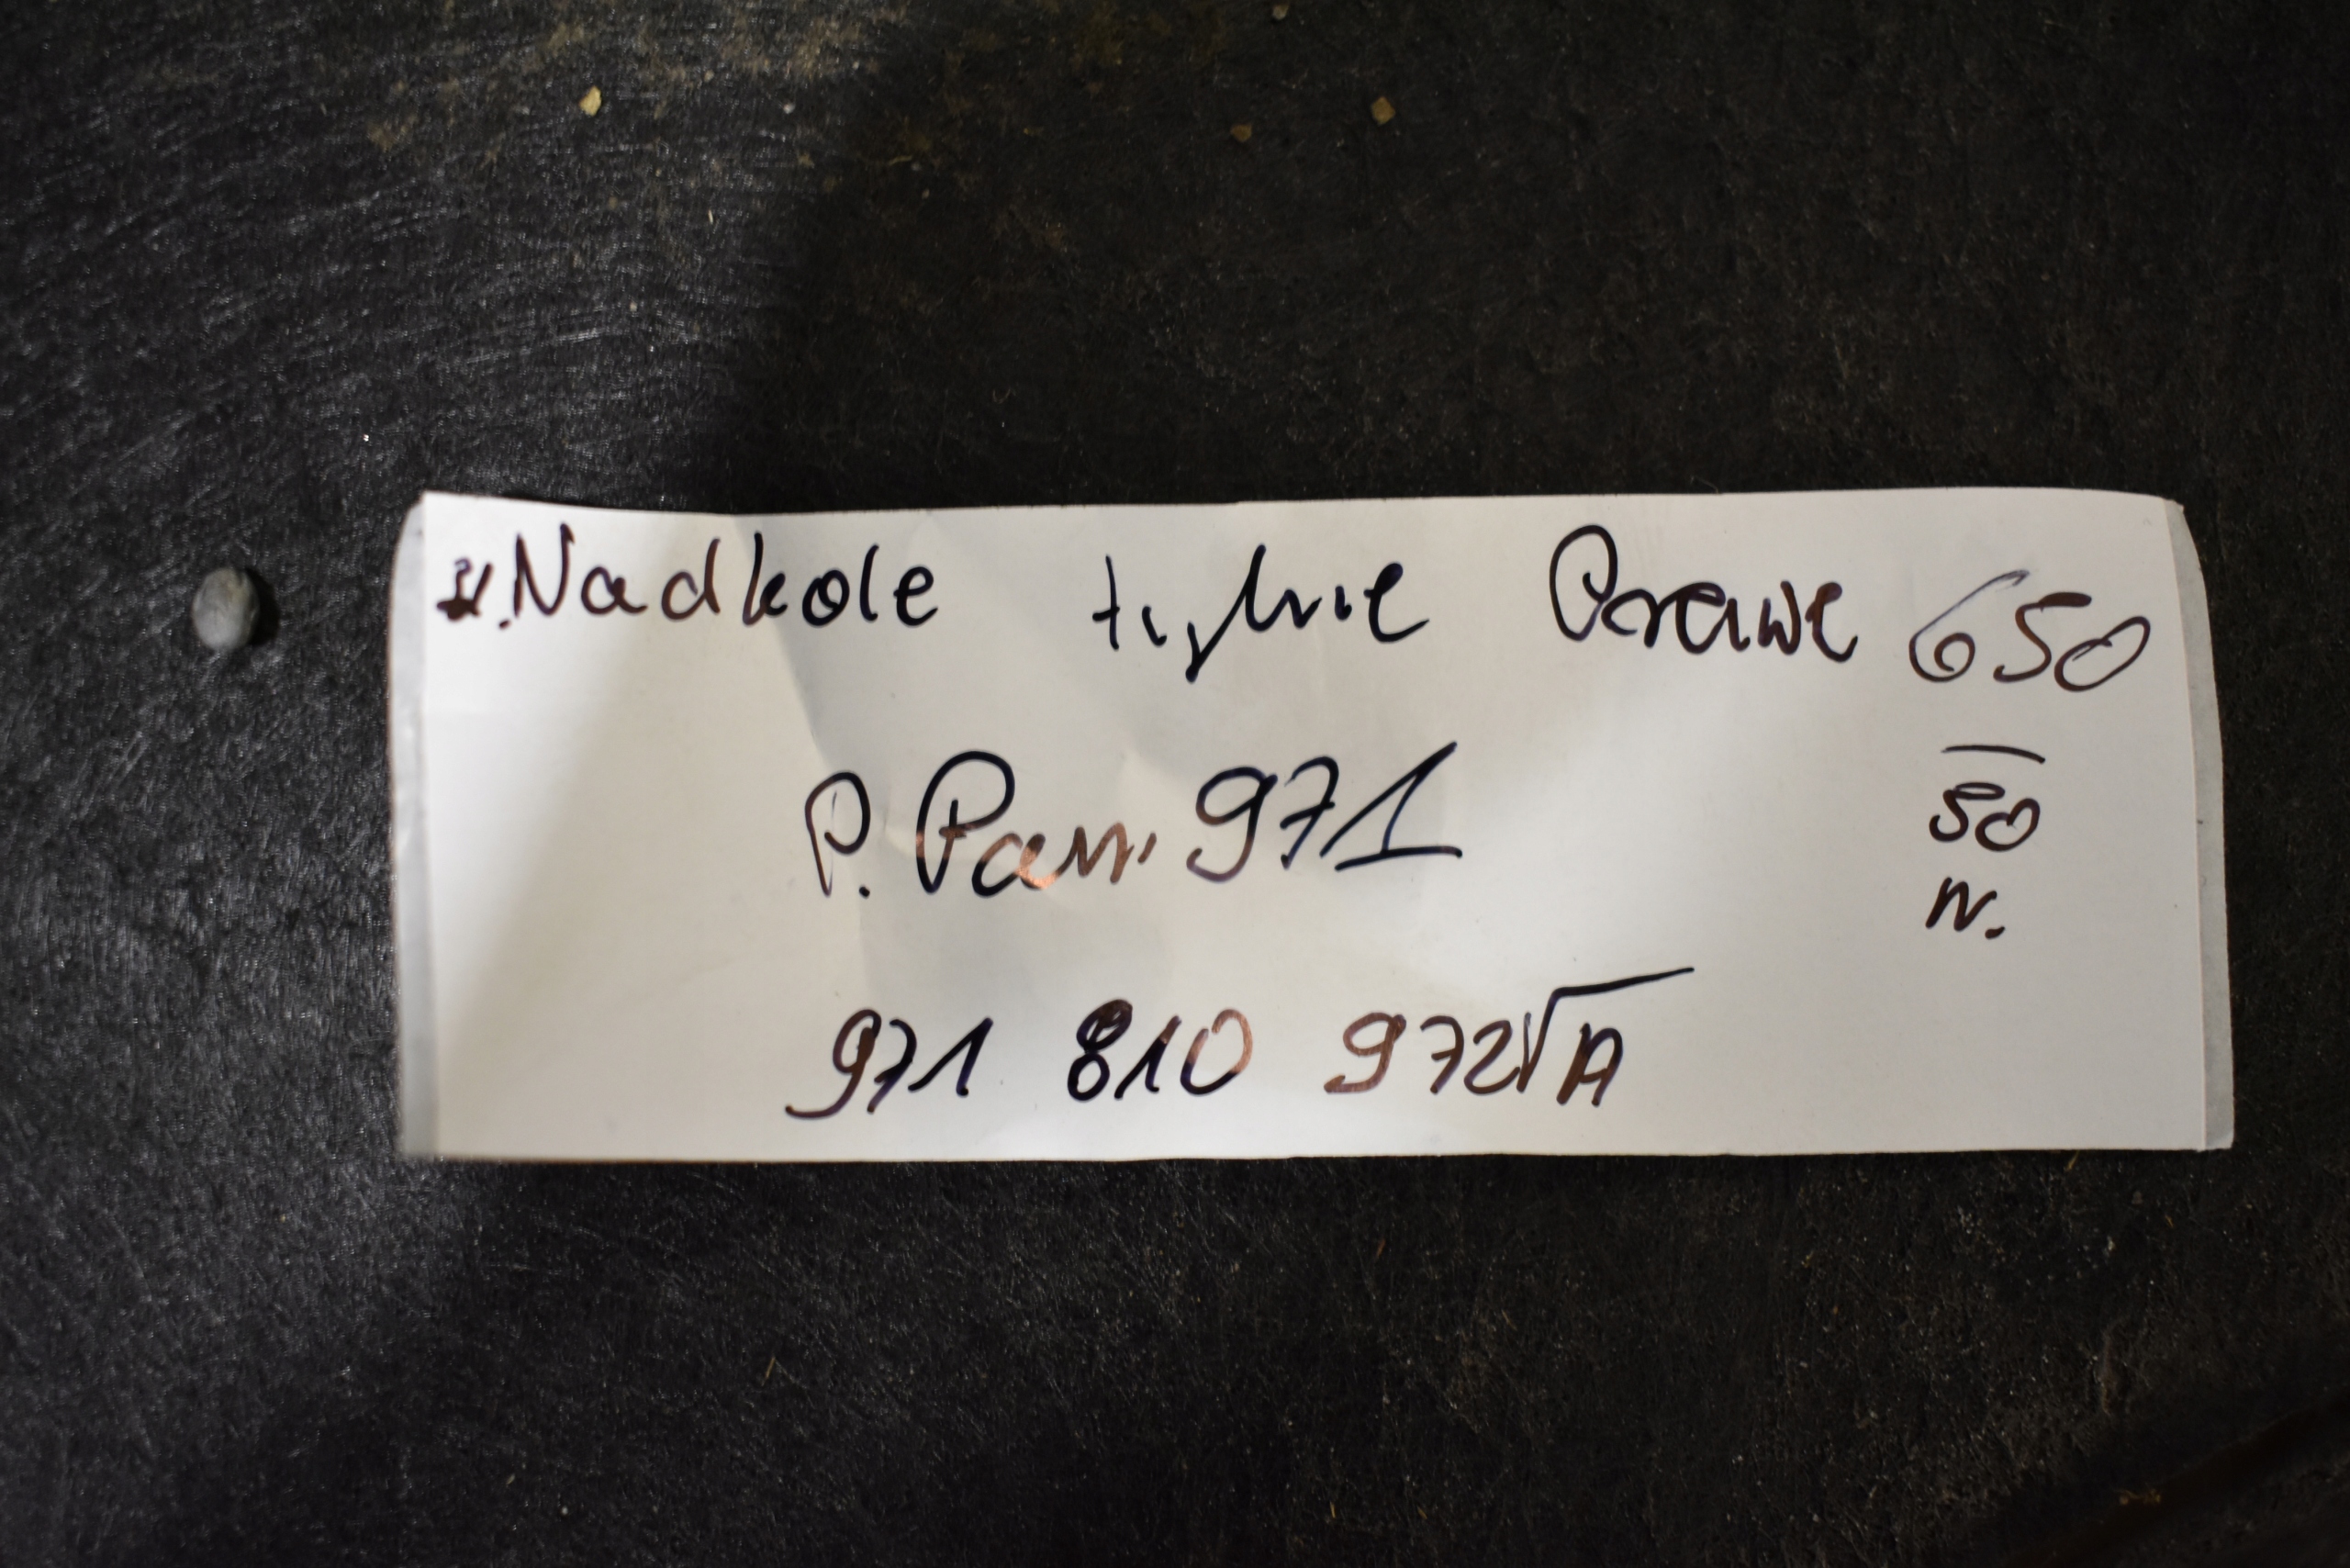 Nadkole tylnie Prawe 650
P. Pan. 971
50
N.
971 810 972 A